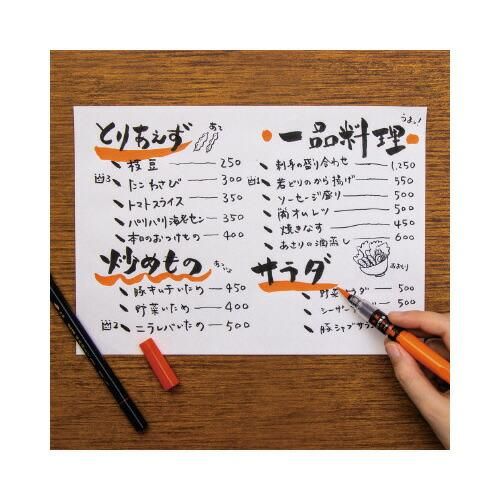 とりあえず
枝豆 250
たこわさび 300
トマトスライス 350
パリパリ海老セン 350
本日のおつけもの 400
炒めもの
豚キムチいため 450
野菜いため 400
ニラレバいため 500
うまい!
一品料理
刺身の盛り合わせ 1,250
若どりのから揚げ 550
ソーセージ盛り 500
肉オムレツ 500
焼きなす 450
あさりの酒蒸し 600
サラダ
おおもり
野菜サラダ 500
シーザー 500
豚シャブサラ